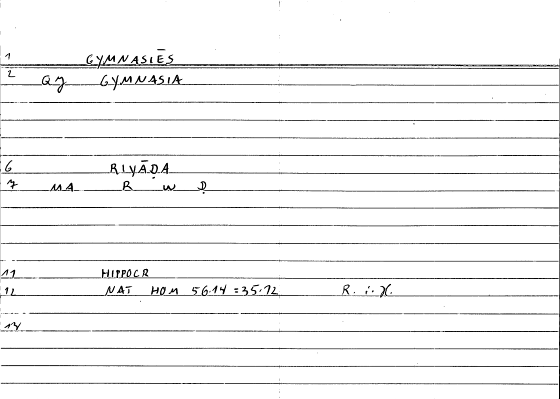 1 GYMNASIĒS
2 Qy GYMNASIA
6 RIYĀḌA
7 MA R W Ḍ
11 HIPPOCR
12 NAT HOM 56.14 = 35.12 R.
14